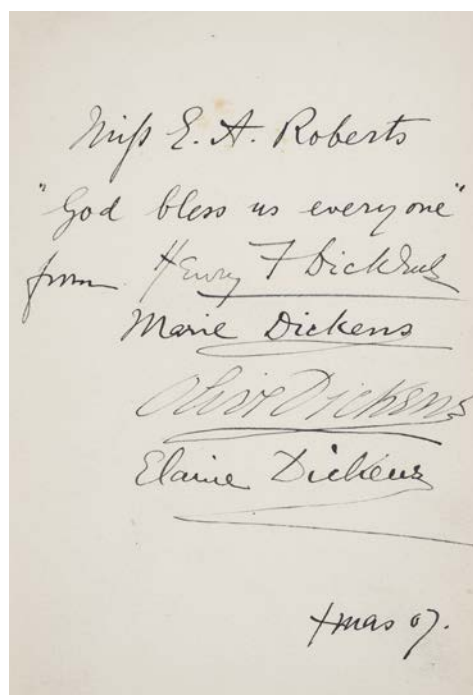 Miss E. A. Roberts
"God bless us everyone"
from Henry F Dickens
Marie Dickens
Olive Dickens
Elaine Dickens
Xmas 07.